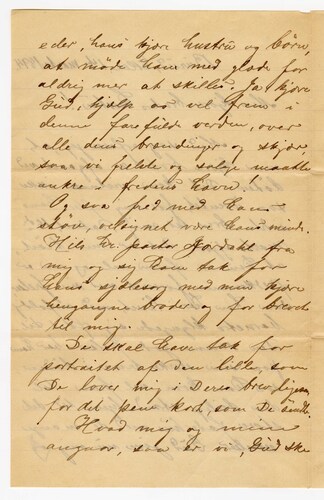 eder, hans kjære hustru og børn,
at møde ham med glæde for
aldrig mer at skilles. Ja, kjære
Gud, hjælp os vel frem i
denne farefulde verden, over
alle dens brændinger og skjær,
saa vi frelste og salige maatte
ankre i fredens havn!
Og saa fred med hans
støv, velsignet være hans minde.
Hils Hr. pastor Hordahl fra
mig og sig ham tak for
hans sjælesorg med min kjære
hengangne broder og for brevet
til mig.
De skal have tak for
portraitet af den lille, som
De lover mig i Deres brev, ligesaa
for det pene kort, som De sendte.
Hvad mig og mine
angaar, saa er vi, Gud ske